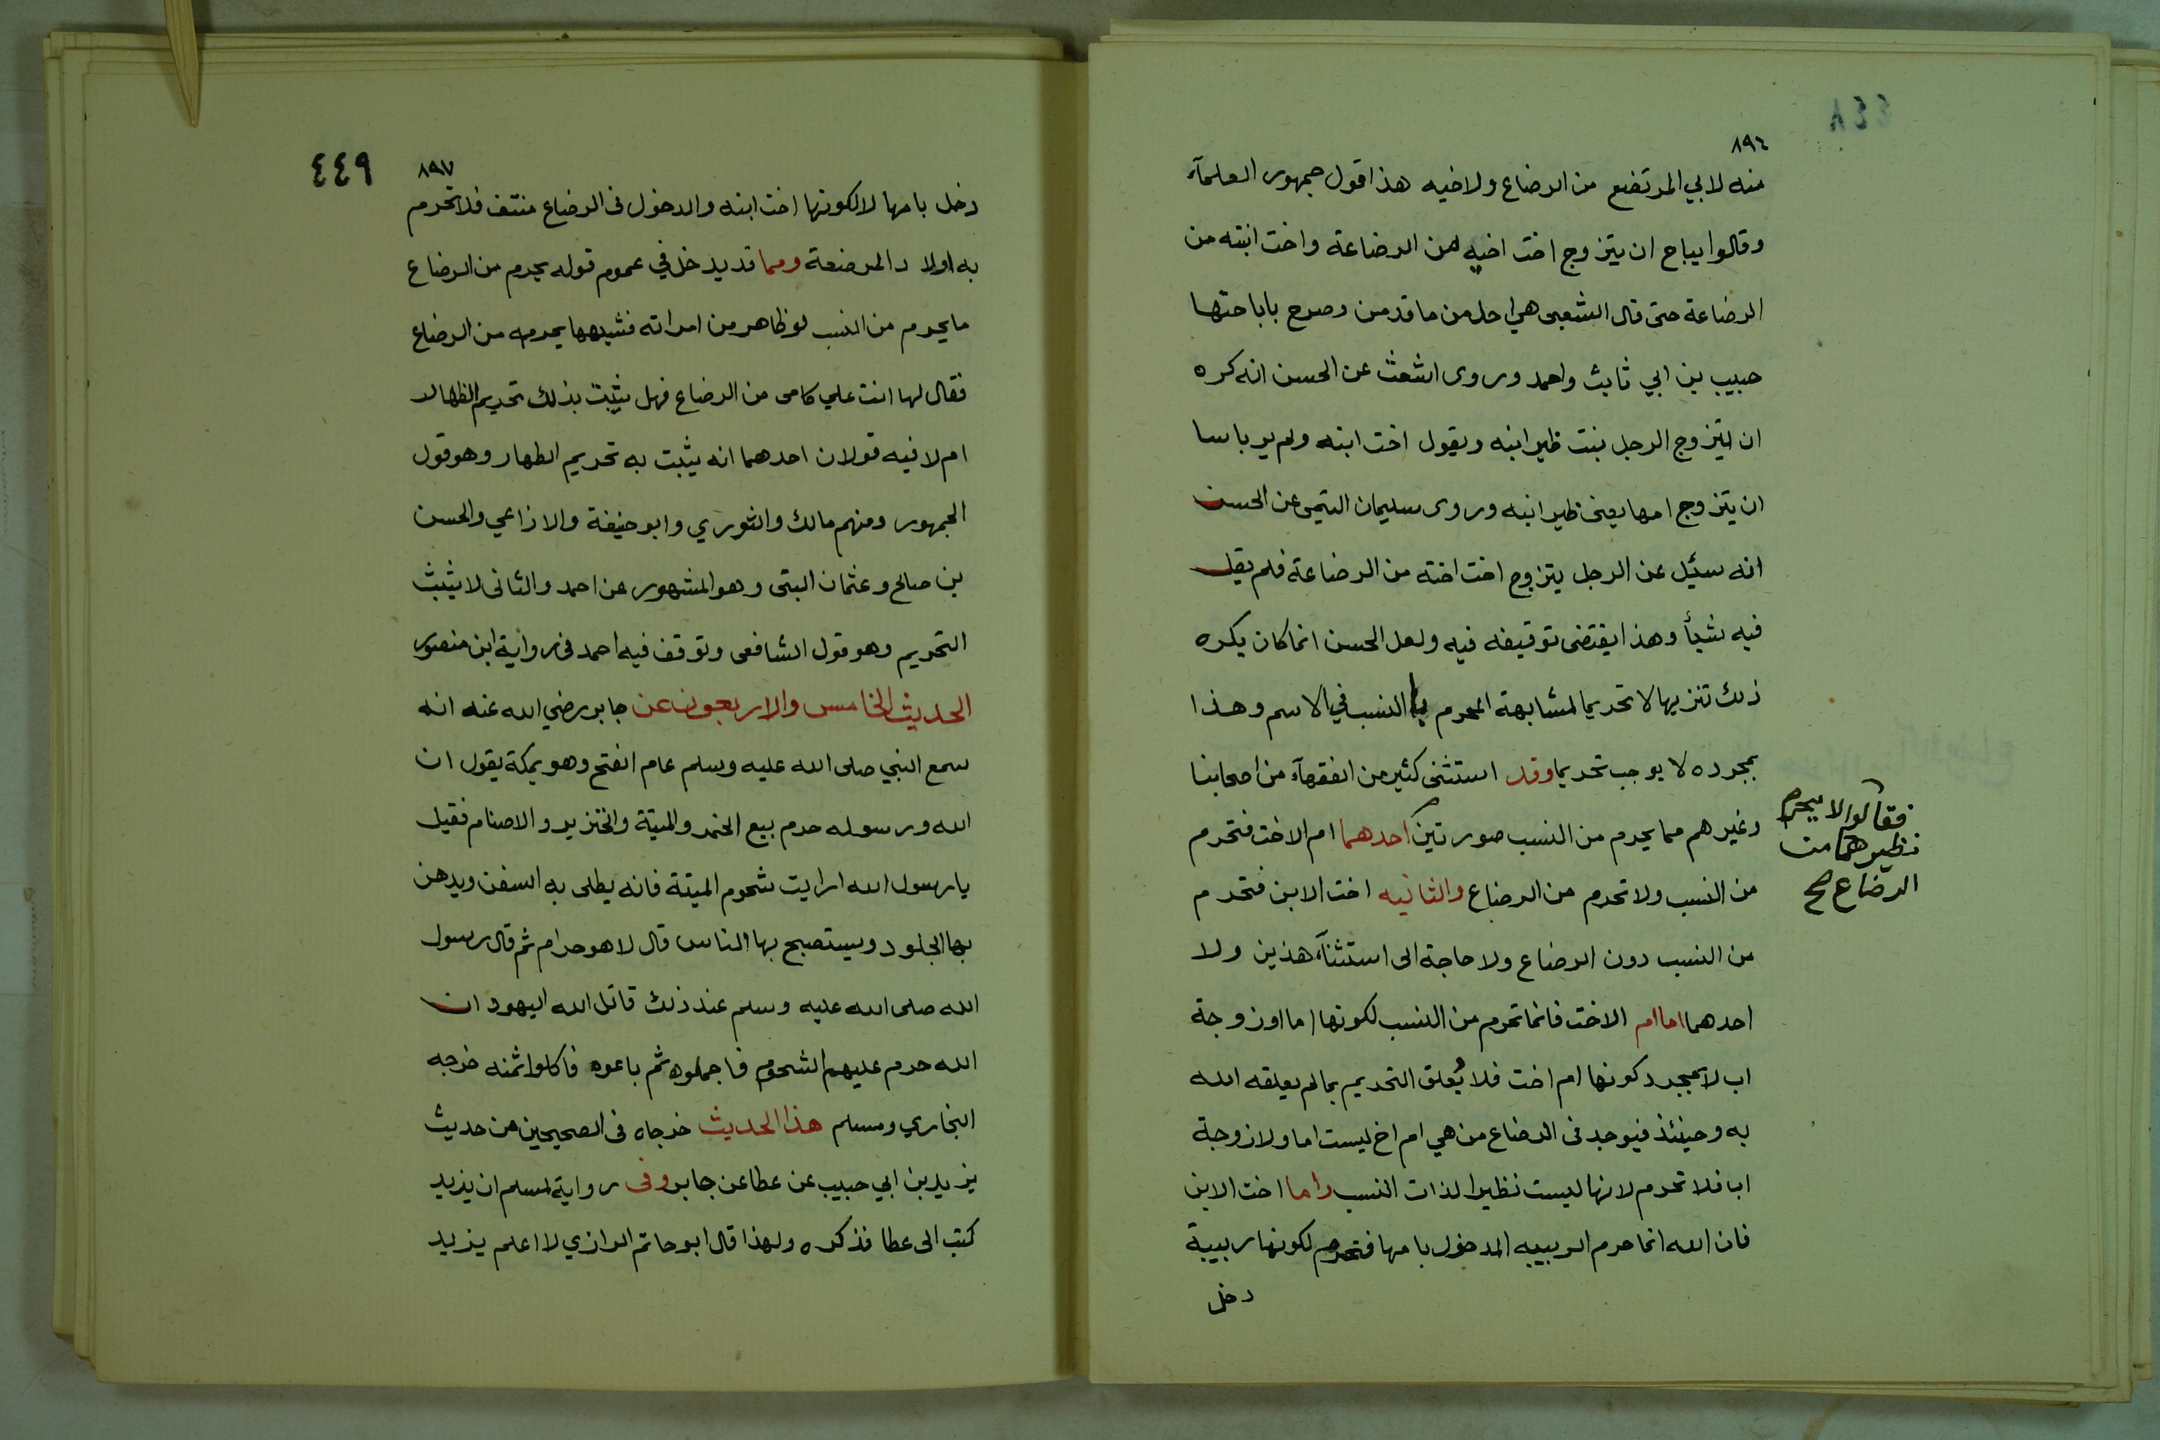 ٤٤٨
٨٩٦
منه لابي المرتضع من الرضاع ولاخيه هذا قول جمهور العلمآء
وقالوا يباح ان يتزوج اخت اخيه من الرضاعة واخت ابنته من
الرضاعة حتى قال الشعبى هي احل من ما قدمن وصرح باباحتها
حبيب بن ابي ثابت واحمد وروى اشعث عن الحسن انه كره
ان يتزوج الرجل بنت ظير ابنه ويقول اخت ابنه ولم ير باسا
ان يتزوج امها يعنى ظير ابنه وروى سليمان التيمى عن الحسن
انه سئيل عن الرجل يتزوج اخت اخته من الرضاعة فلم يقل
فيه شيأ وهذا يقتضى توقيفه فيه ولعل الحسن انما كان يكره
ذلك تنزيها لا تحريما لمشابهة المحرم بالنسب في الاسم وهذا
بمجرده لا يوجب تحريما وقد استثنى كثير من الفقهآء من اصحابنا
وغيرهم مما يحرم من النسب صورتين احدهما ام الاخت فتحرم
فقالوا لا يحرم
نظيرهما من
الرضاع صح
من النسب ولا تحرم من الرضاع والثانيه اخت الابن فتحرم
من النسب دون الرضاع ولا حاجة الى استثنآء هذين ولا
احدهما اما ام الاخت فانما تحرم من النسب لكونها اما اوزوجة
اب لا بمجرد كونها ام اخت فلا يُعلق التحريم بما لم يعلقه الله
به وحينئذ فيوجد فى الرضاع من هي ام اخ ليست اما ولا زوجة
اب فلا تحرم لانها ليست نظيرا لذات النسب واما اخت الابن
فان الله انما حرم الربيبه المدخول بامها فتحرم لكونها ربيبة
دخل
٤٤٩
٨٩٧
دخل بامها لا لكونها اخت ابنه والدخول فى الرضاع منتف فلا تحرم
به اولاد المرضعة ومما قد يدخل في عموم قوله يحرم من الرضاع
ما يحرم من النسب لو ظاهر من امراته فشبهها بمحرمه من الرضاع
فقال لها انت علي كامى من الرضاع فهل يثبت بذلك تحريم الظهار
ام لا فيه قولان احدهما انه يثبت به تحريم الظهار وهو قول
الجمهور ومنهم مالك والثوري وابو حنيفة والاذاعي والحسن
بن صالح وعثمان البتى وهو المشهور عن احمد والثانى لا يثبت
التحريم وهو قول الشافعى وتوقف فيه احمد فى رواية ابن منصور
الحديث الخامس والاربعون عن جابر رضي الله عنه انه
سمع النبي صلى الله عليه وسلم عام الفتح وهو بمكة يقول ان
الله ورسوله حرم بيع الخمر والميتة والخنزير والاصنام فقيل
يا رسول الله ارايت شحوم الميتة فانه يطلى به السفن ويدهن
بها الجلود ويستصبح بها الناس قال لا هو حرام ثم قال رسول
الله صلى الله عليه وسلم عند ذلك قاتل الله اليهود ان
الله حرم عليهم الشحوم فاجملوه ثم باعوه فاكلوا ثمنه خرجه
البخاري ومسلم هذا الحديث خرجاه فى الصحيحين من حديث
يزيد بن ابي حبيب عن عطا عن جابر وفى رواية لمسلم ان يزيد
كتب الى عطا فذكره ولهذا قال ابو حاتم الرازي لا اعلم يزيد